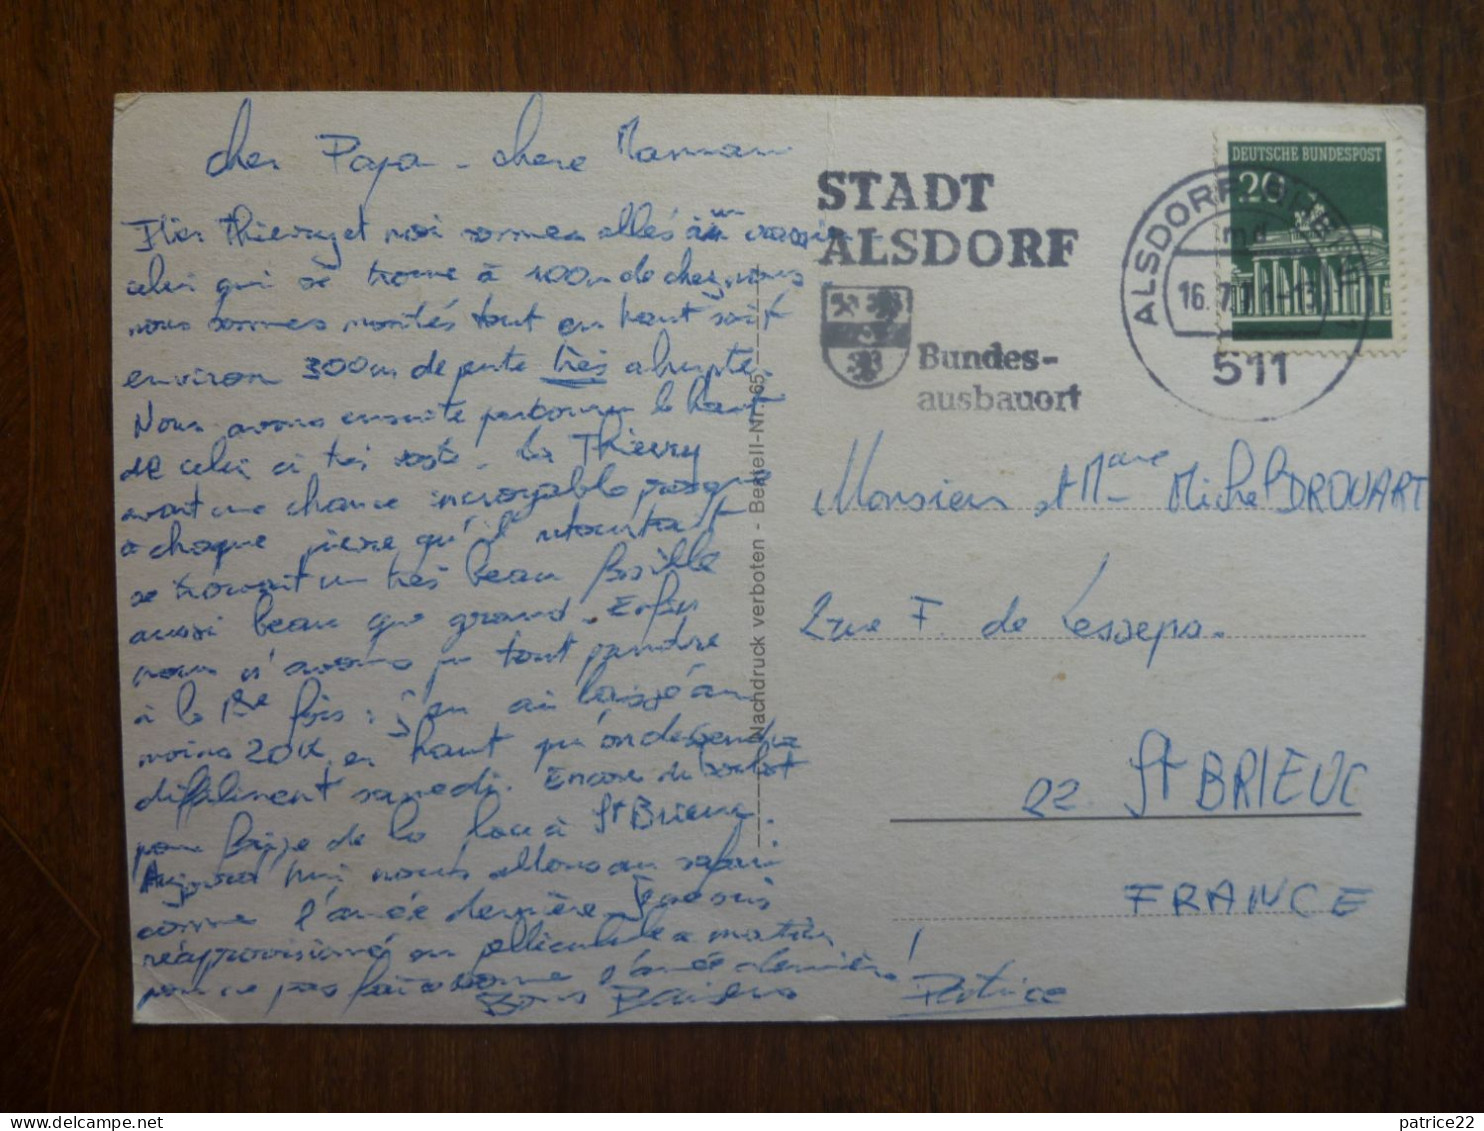 cher Papa - chere Maman
Hier Thierry et moi sommes allés à un
celui qui se trouve à 100m de chez nous
nous sommes montés tout en haut soit
environ 300m de pente très abrupte.
Nous avons ensuite parcouru le haut
de celui ci très vaste. Thierry
avait une chance incroyable presque
à chaque pierre qu'il retournait
se trouvait un très beau fossile
aussi beau que grand. Enfin
nous n'avons pu tout prendre
à la 1ère fois: j'en ai laissé au
moins 20K en haut qu'on descendra
samedi. Encore de
pour de la à St Brieuc.
Aujourd'hui nous allons au safari
comme l'année dernière. Je me suis
réapprovisionné en pellicule ce matin
pour ne pas faire comme l'année dernière!
Bons Baisers Patrice
STADT
ALSDORF
Bundes-
ausbauort
ALSDORF
md
16.7.71-13
511
DEUTSCHE BUNDESPOST
20
Monsieur et Mme Michel DROUART
2 rue F. de Lesseps.
22 St BRIEUC
FRANCE
Nachdruck verboten - Bestell-Nr. 165
patrice22